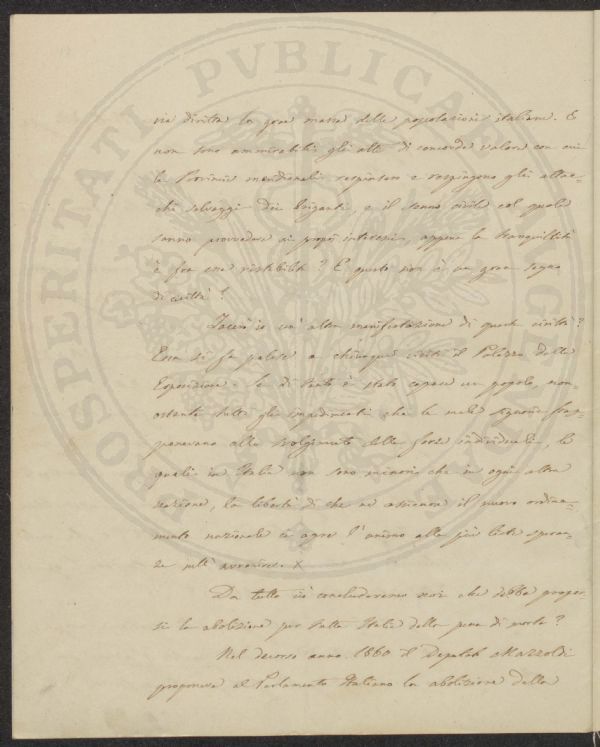 PROSPERITATI PVBLICAE
via diritta la gran massa delle popolazioni italiane. E
non sono ammirabili gli atti di concorde valore con cui
le Provincie meridionali respinsero e respingono gli attac-
chi selvaggi dei briganti, e il senno civile col quale
sanno provvedere ai propri interessi, appena la tranquillità
è fra esse ristabilita? E questo non è un gran segno
di civiltà?
Tacerò io un'altra manifestazione di questa civiltà?
Essa si fa palese a chiunque visiti il Palazzo della
Esposizione. Se di tanto è stato capace un popolo, non-
ostante tutti gli impedimenti che le male signorie frap-
ponevano allo svolgimento delle forze individuali, le
quali in Italia non sono minori che in ogni altra
nazione, la libertà di che ne assicura il nuovo ordina-
mento nazionale ci apre l'animo alle più liete speran-
ze nell'avvenire. X
Da tutto ciò concluderemo noi che debba propor-
si la abolizione per tutta Italia della pena di morte?
Nel decorso anno 1860 il Deputato Mazzoldi
proponeva al Parlamento Italiano la abolizione della